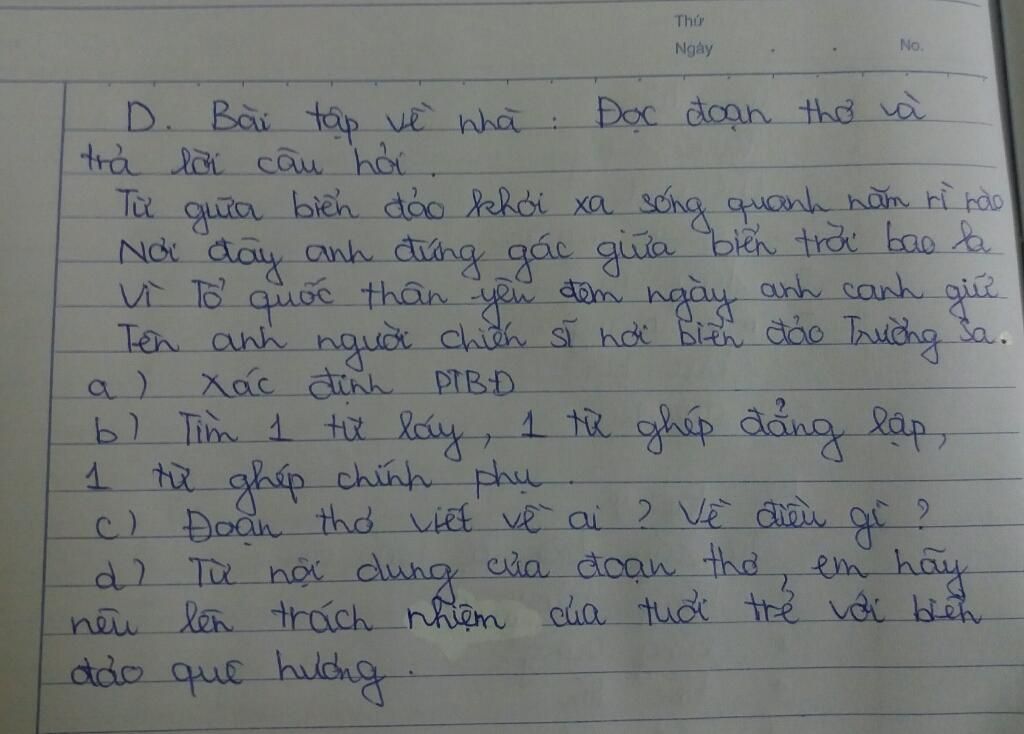 Thứ
Ngày . . No.
D. Bài tập về nhà : Đọc đoạn thơ và
trả lời câu hỏi.
Từ giữa biển đảo khơi xa sóng quanh năm rì rào
Nơi đây anh đứng gác giữa biển trời bao la
Vì Tổ quốc thân yêu đêm ngày anh canh giữ
Tên anh người chiến sĩ nơi biển đảo Trường Sa.
a) Xác định PTBĐ
b) Tìm 1 từ láy, 1 từ ghép đẳng lập,
1 từ ghép chính phụ.
c) Đoạn thơ viết về ai ? Về điều gì ?
d) Từ nội dung của đoạn thơ, em hãy
nêu lên trách nhiệm của tuổi trẻ với biển
đảo quê hương.